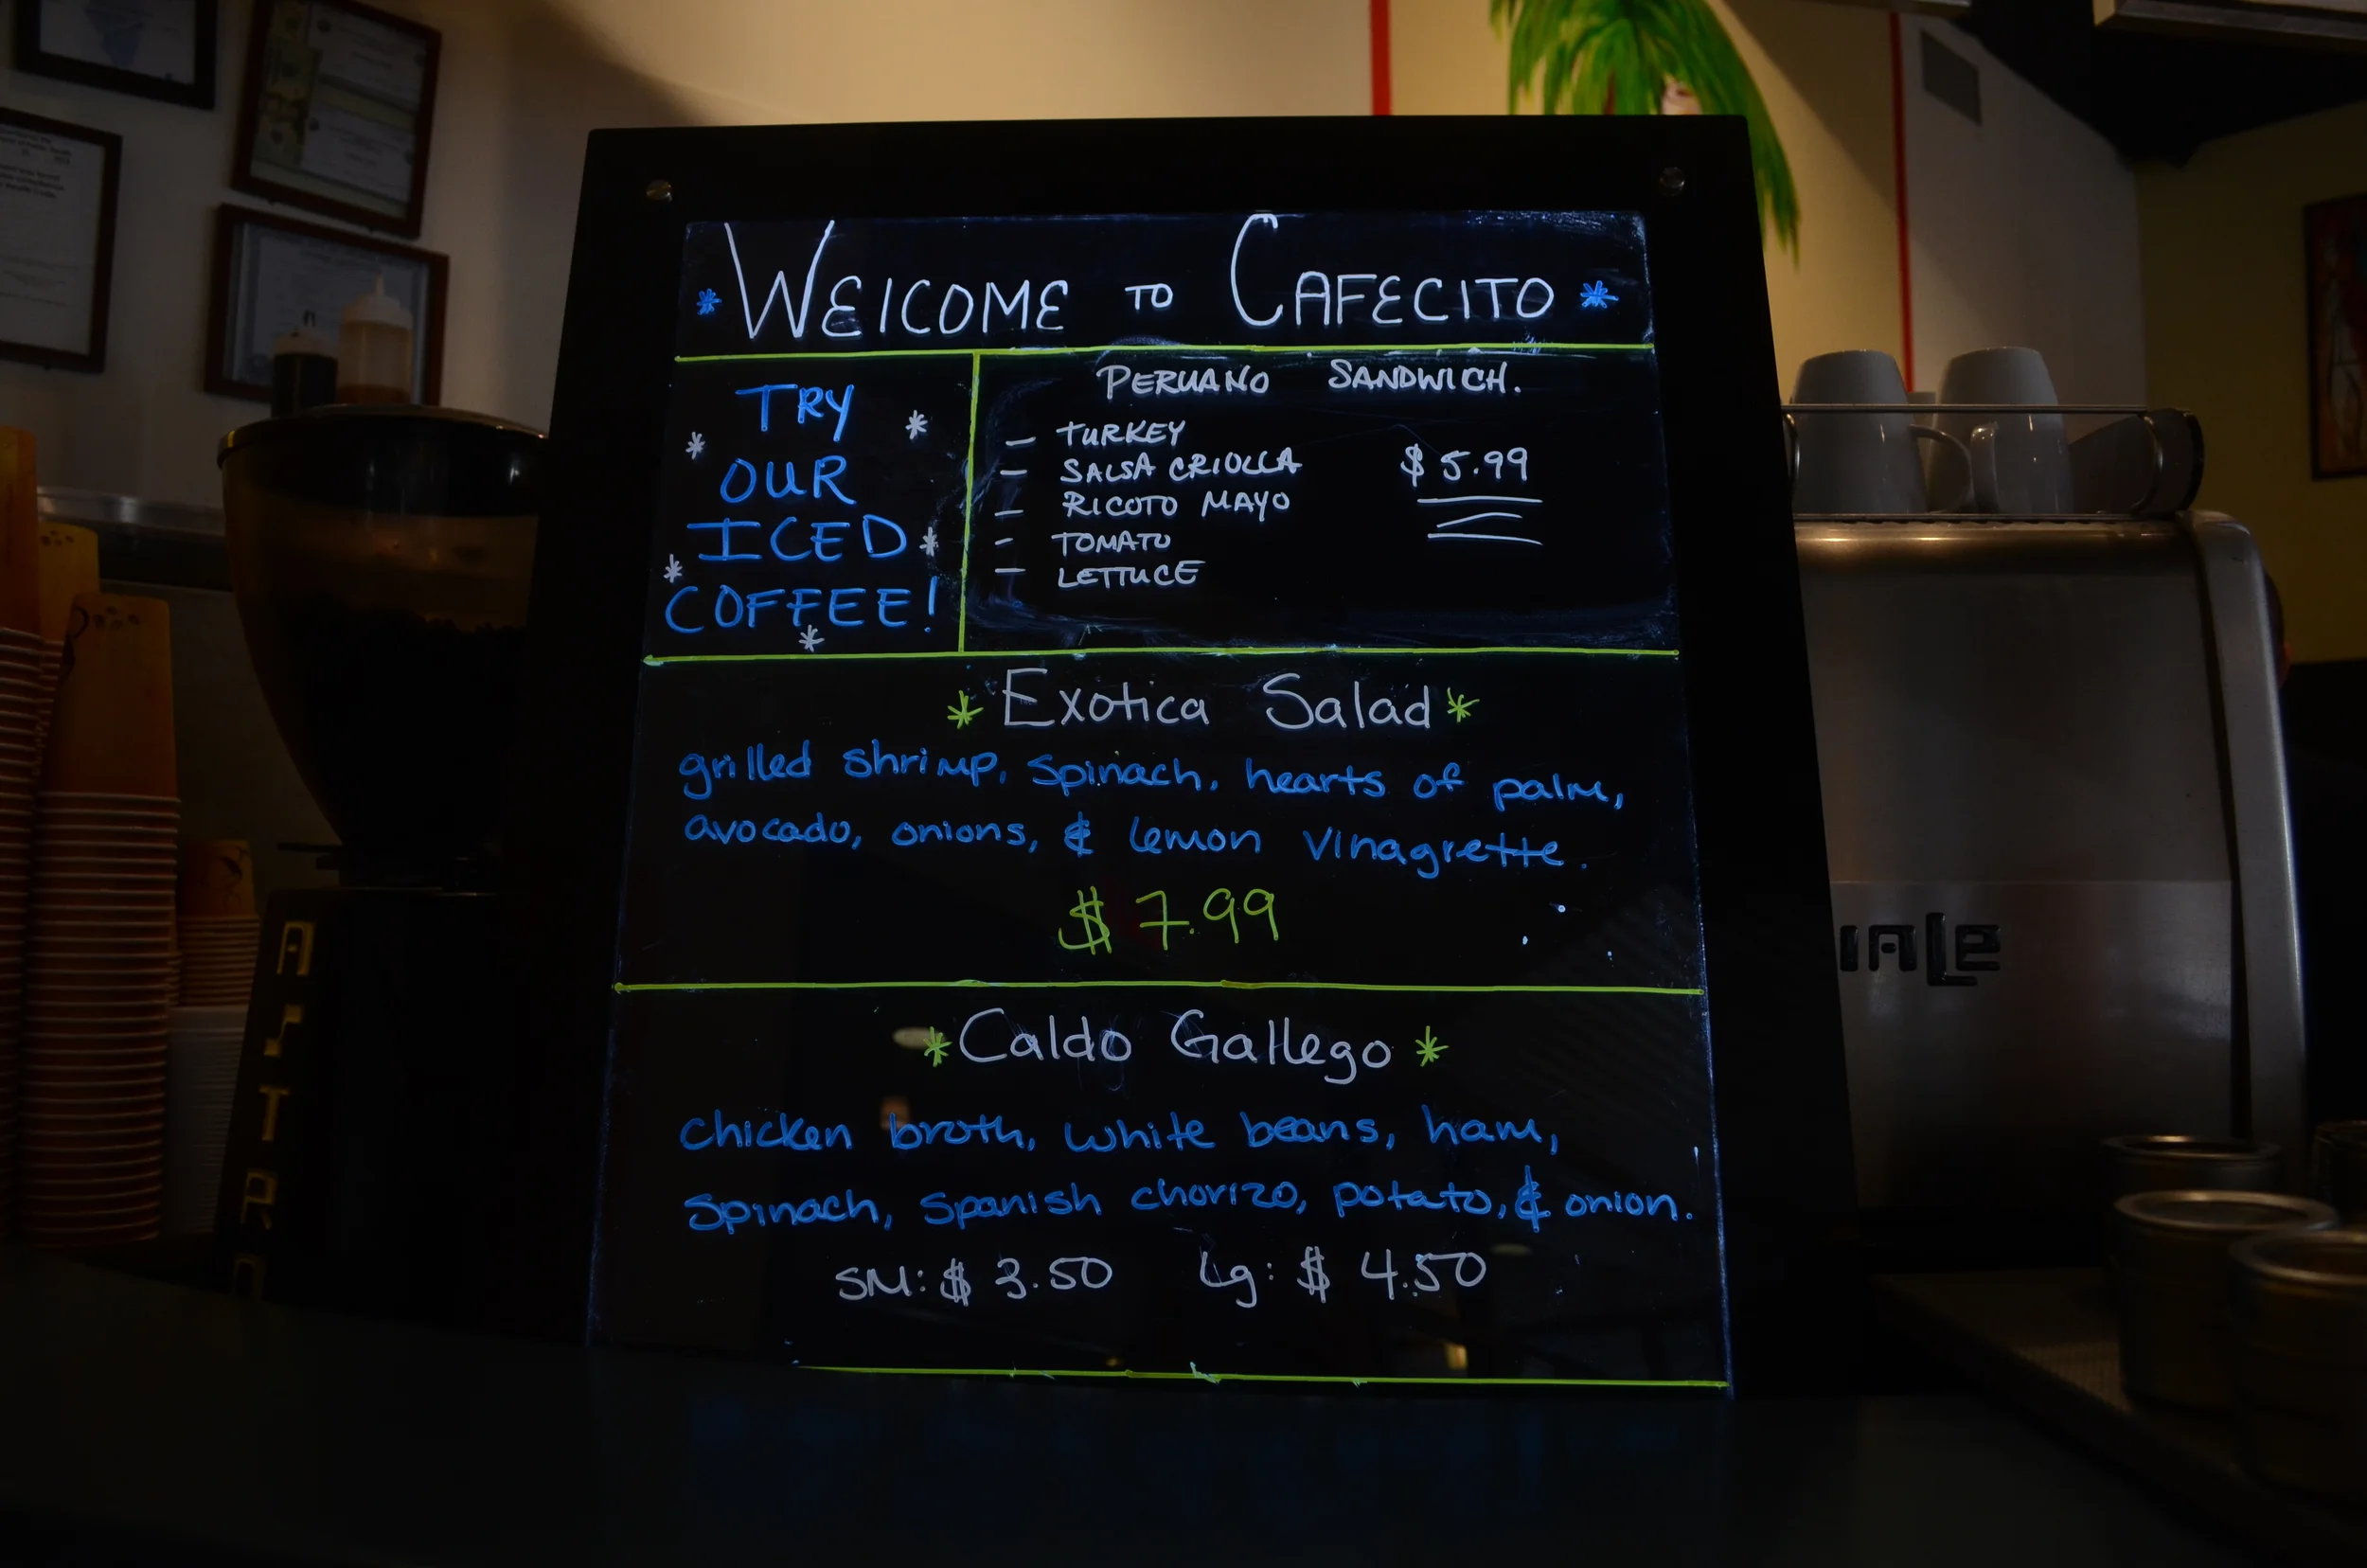 * WElCOME TO CAFECITO *
TRY
OUR
ICED
COFFEE!
PERUANO SANDWICH.
— TURKEY
— SALSA CRIOLLA
— RICOTO MAYO
— TOMATO
— LETTUCE
$5.99
* Exotica Salad *
grilled shrimp, spinach, hearts of palm,
avocado, onions, & lemon vinagrette.
$7.99
* Caldo Gallego *
chicken broth, white beans, ham,
spinach, spanish chorizo, potato, & onion.
SM: $3.50 Lg: $4.50
ASTRO